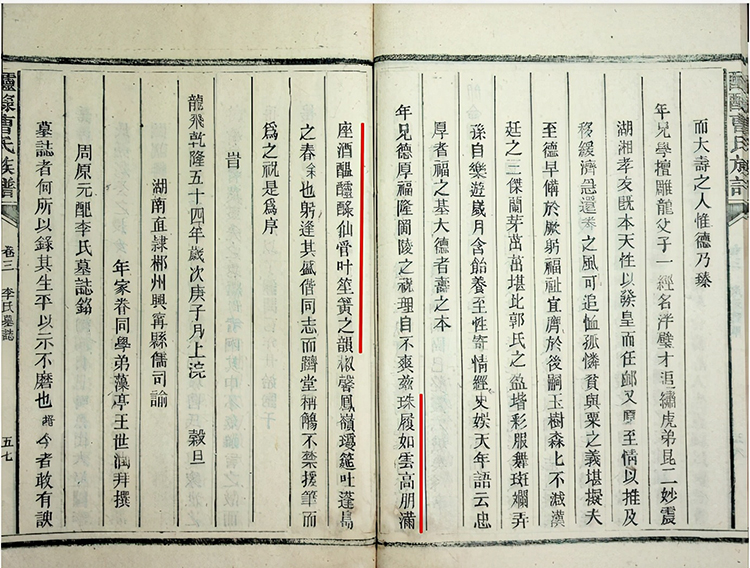 而大壽之人惟德乃臻
年兄學擅雕龍父子一經名泮璧才追繡虎弟昆二妙震
湖湘孝友既本天性以發皇而任卹又摩至情以推及
移緩濟急還券之風可追恤孤憐貧與粟之義堪擬夫
至德早備於厥躬福祉宜膺於後嗣玉樹森上不減漢
廷之三傑蘭芽茁茁堪比郭氏之盈堦彩服舞斑斕弄
孫自樂遊歲月含飴養至性寄情經史娛天年語云忠
厚者福之基大德者壽之本
年兄德厚福隆岡陵之祝理自不爽茲珠履如雲高朋滿
座酒醞醽醁仙管叶笙簧之韻椒馨鳳嶺瓊筵吐蓬島
之春余也躬逢其盛偕同志而躋堂稱觴不禁援筆而
爲之祝是爲序
旹
龍飛乾隆五十四年歲次庚子月上浣 穀旦
湖南直隷郴州興寧縣儒司諭
年家眷同學弟藻亭王世潤拜撰
周原元配李氏墓誌銘
墓誌者何所以錄其生平以示不磨也 今者敢有諛
醽醁曹氏族譜 卷三 李氏墓誌 五七